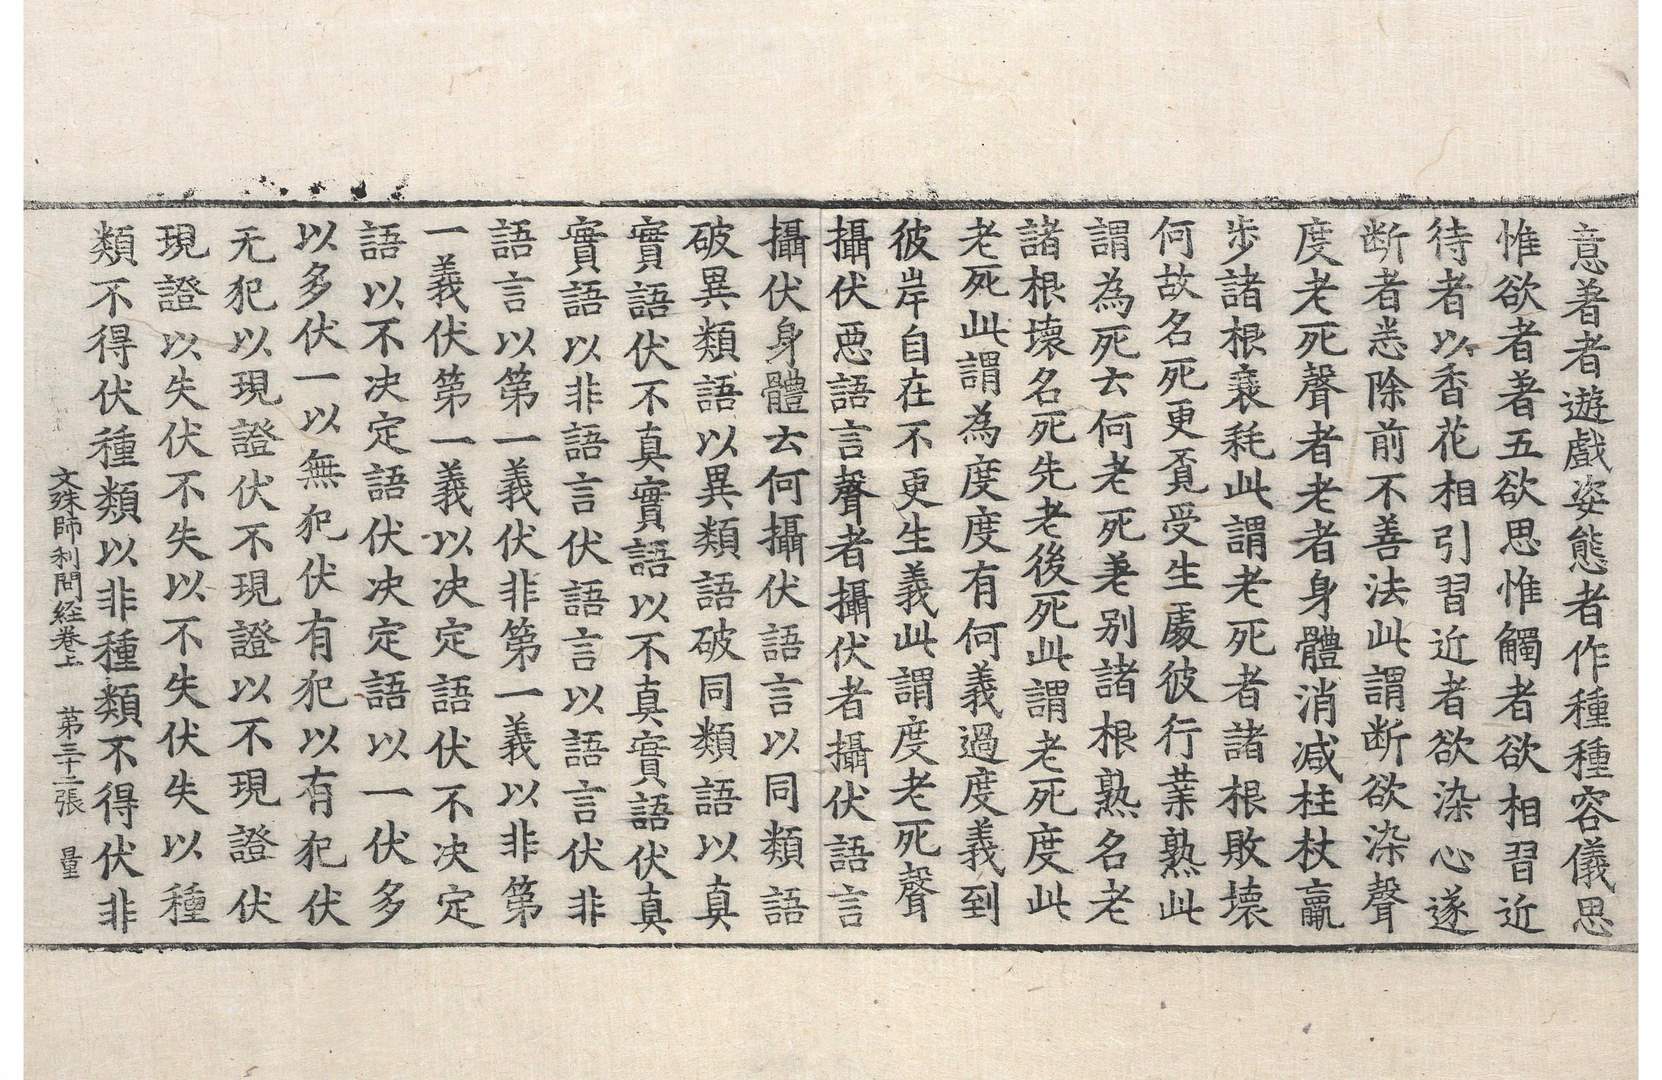 意著者遊戲姿態者作種種容儀思
惟欲者著五欲思惟觸者欲相習近
待者以香花相引習近者欲染心遂
断者悉除前不善法此謂断欲染聲
度老死聲者老者身體消减柱杖羸
步諸根衰耗此謂老死者諸根敗壞
何故名死更覓受生處彼行業熟此
謂為死云何老死差别諸根熟名老
諸根壞名死先老後死此謂老死度此
老死此謂為度度有何義過度義到
彼岸自在不更生義此謂度老死聲
攝伏惡語言聲者攝伏者攝伏語言
攝伏身體云何攝伏語言以同類語
破異類語以異類語破同類語以真
實語伏不真實語以不真實語伏真
實語以非語言伏語言以語言伏非
語言以第一義伏非第一義以非第
一義伏第一義以决定語伏不决定
語以不决定語伏决定語以一伏多
以多伏一以無犯伏有犯以有犯伏
无犯以現證伏不現證以不現證伏
現證以失伏不失以不失伏失以種
類不得伏種類以非種類不得伏非
文殊師利問経卷上 第三十二張 量